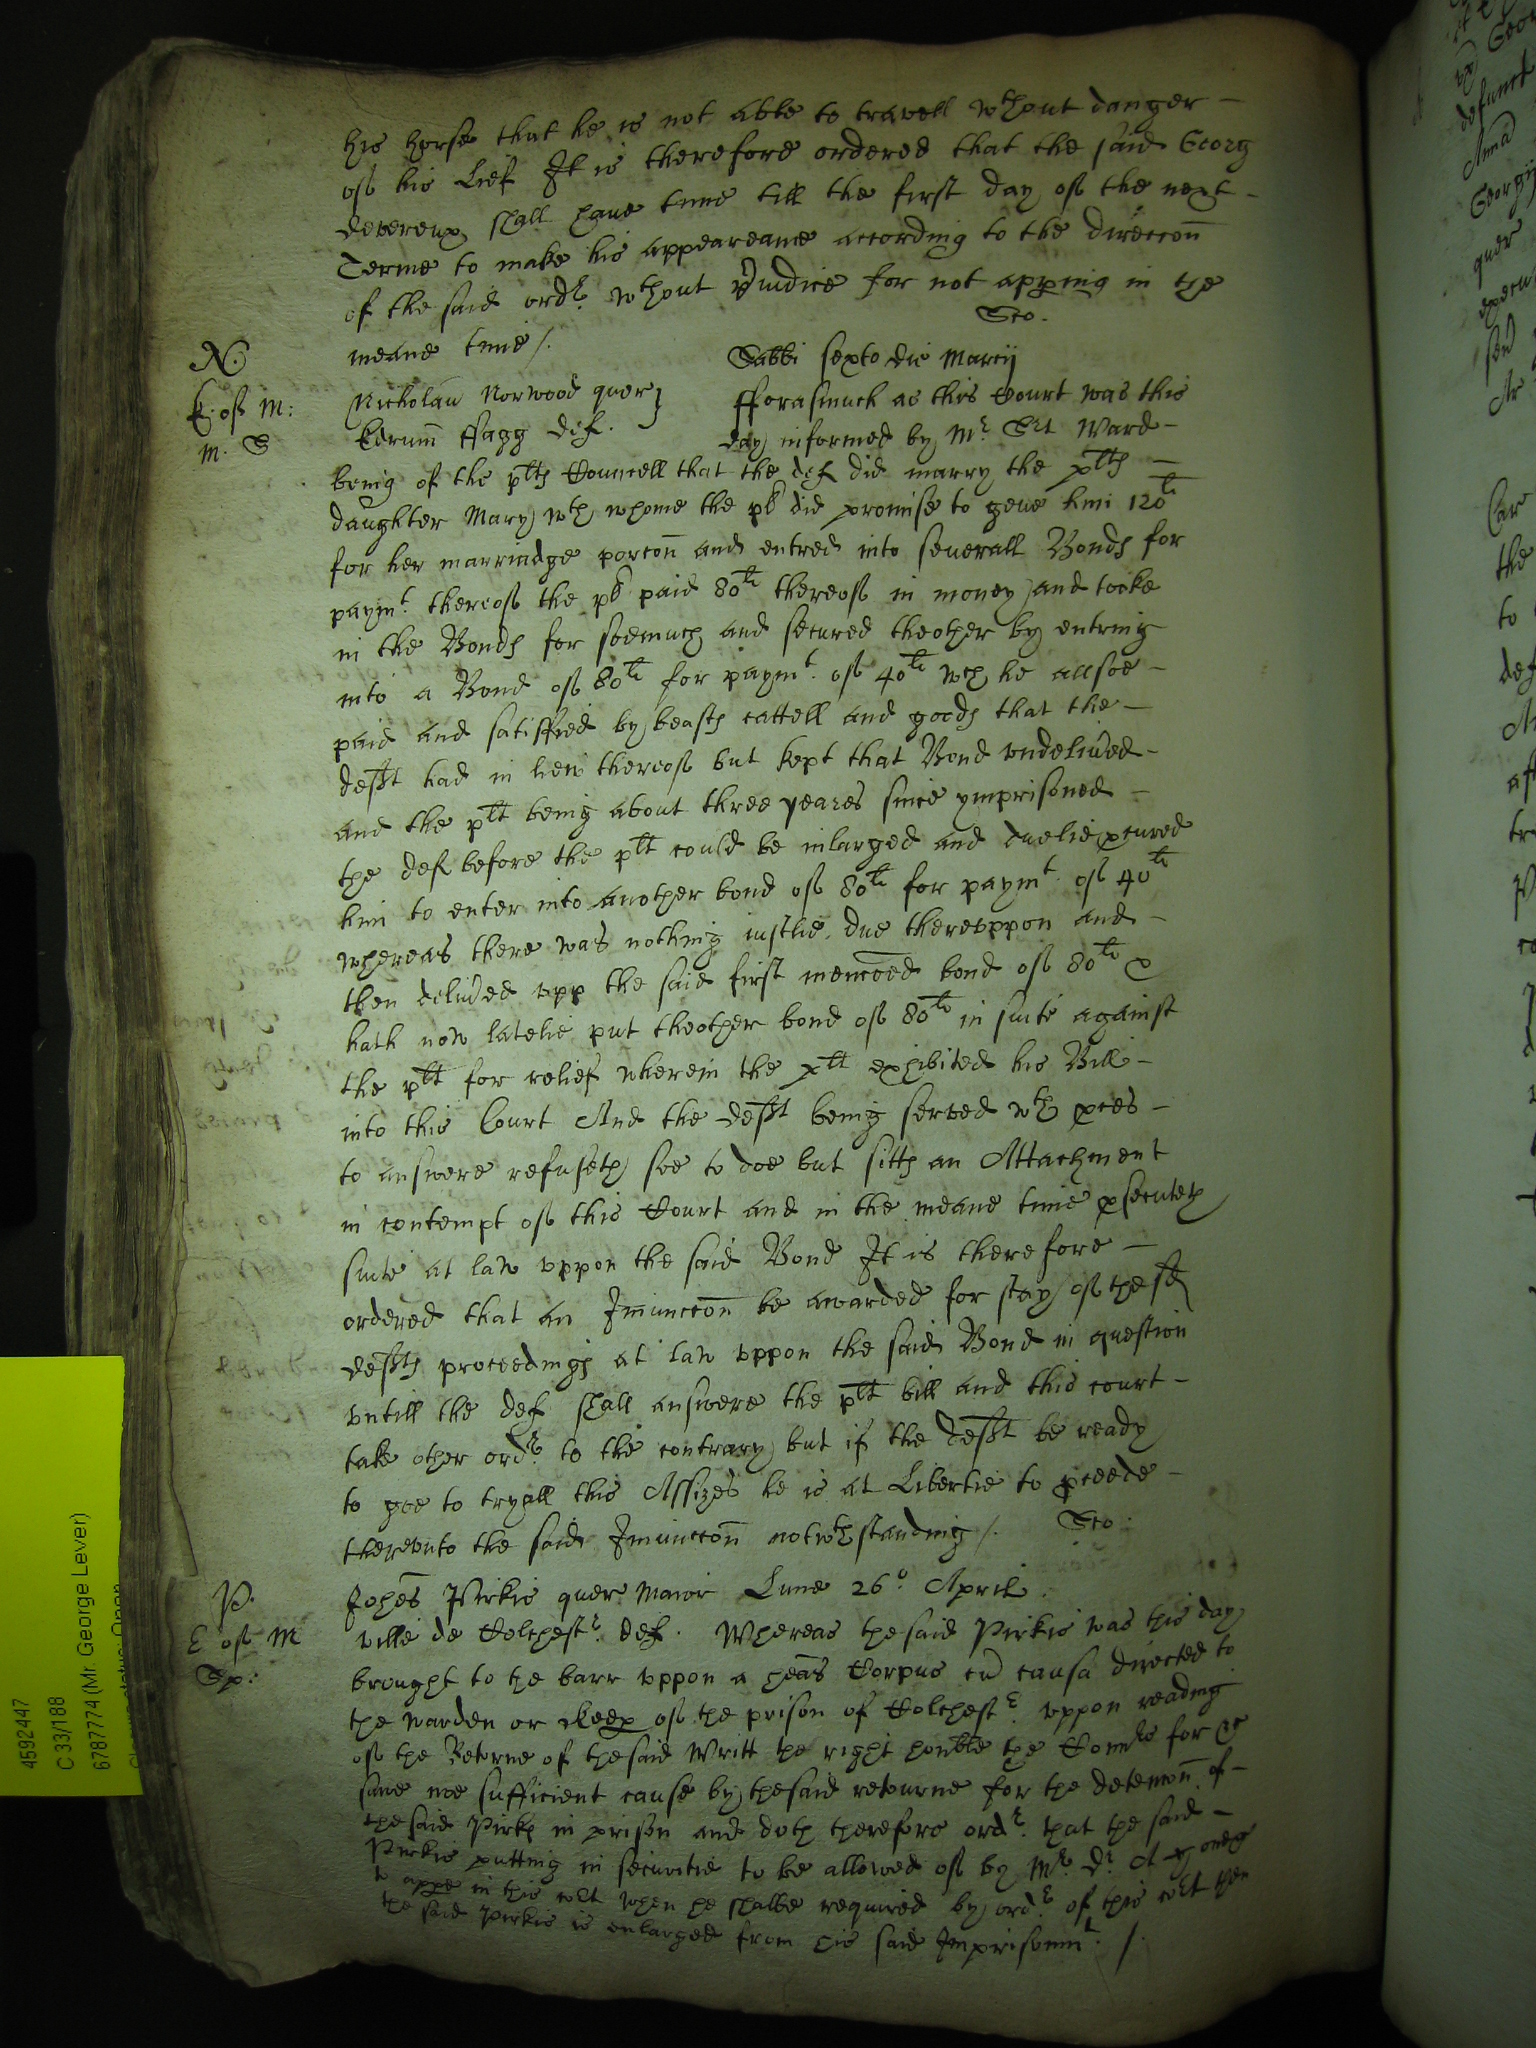 his horse that he is not able to travell wthout danger
off his Lief It is therefore ordered that the said Georg
Devereux shall haue time till the first day off the next
Terme to make his appeareance according to the direccon
of the said ordr wthout piudice for not apping in the
meane time /.
N.
Sabbi sexto die Marcij
Nicholau Norwood quer
fforasmuch as this Court was this
ffagg def.
day informed by Mr Ward
being of the plts Councell that the def did marry the plts
daughter Mary wth whome the pl did promise to geue him 120li
for her marriadge porcon and entred into seuerall Bonds for
paymt. thereoff the pl paid 80li thereoff in money and tooke
in the Bonds for soemuch and secured theother by entring
into a Bond off 80li for paymt. off 40li wch he allsoe
paid and satisfied by beasts cattell and goods that the
defft had in liew thereoff but kept that Bond vndeliued
and the plt being about three yeares since ymprisoned
the def before the plt could be inlarged and duelie pcured
him to enter into another bond off 80li for paymt. off 40li
whereas there was nothing iustlie due therevppon and
then deliued vpp the said first menconed bond off 80li
hath now latelie put theother bond off 80li in suite against
the plt for relief wherein the plt exhibited his Bill
into this Court And the defft being served wth pces
to answere refuseth soe to doe but sitts an Attachment
in contempt off this Court and in the meane time psecuteth
suite at law vppon the said Bond It is therefore
ordered that an Iniunccon be awarded for stay off the sd
deffts proceedings at law vppon the said Bond in question
vntill the def shall answere the plt bill and this court
take other ordr. to the contrary but if the defft be ready
to goe to tryall this Assizes he is at Libertie to pceede
therevnto the said Iniunccon notwthstanding /.
P.
Johes Pirkis quer Maior Lune 26o. April.
ville de Colchestr. def. Whereas the said Pirkis was this day
brought to the barr vppon a heas Corpus cu causa directed to
the warden or keep off the prison of Colchestr. vppon reading
off the Retorne of the said Writt the right honble the Comrs for
saue noe sufficient cause by the said retourne for the detencon of
the said Pirks in prison and doth therefore ordr. that the said
Pirkis putting in securitie to be allowed off by Mr. Dr.
to appe in this cort when he shalbe required by ordr. of this cort then
the said Pirkis is enlarged from his said Imprisonmt. /.
4592447
C 33/188
6787774 (Mr. George Lever)